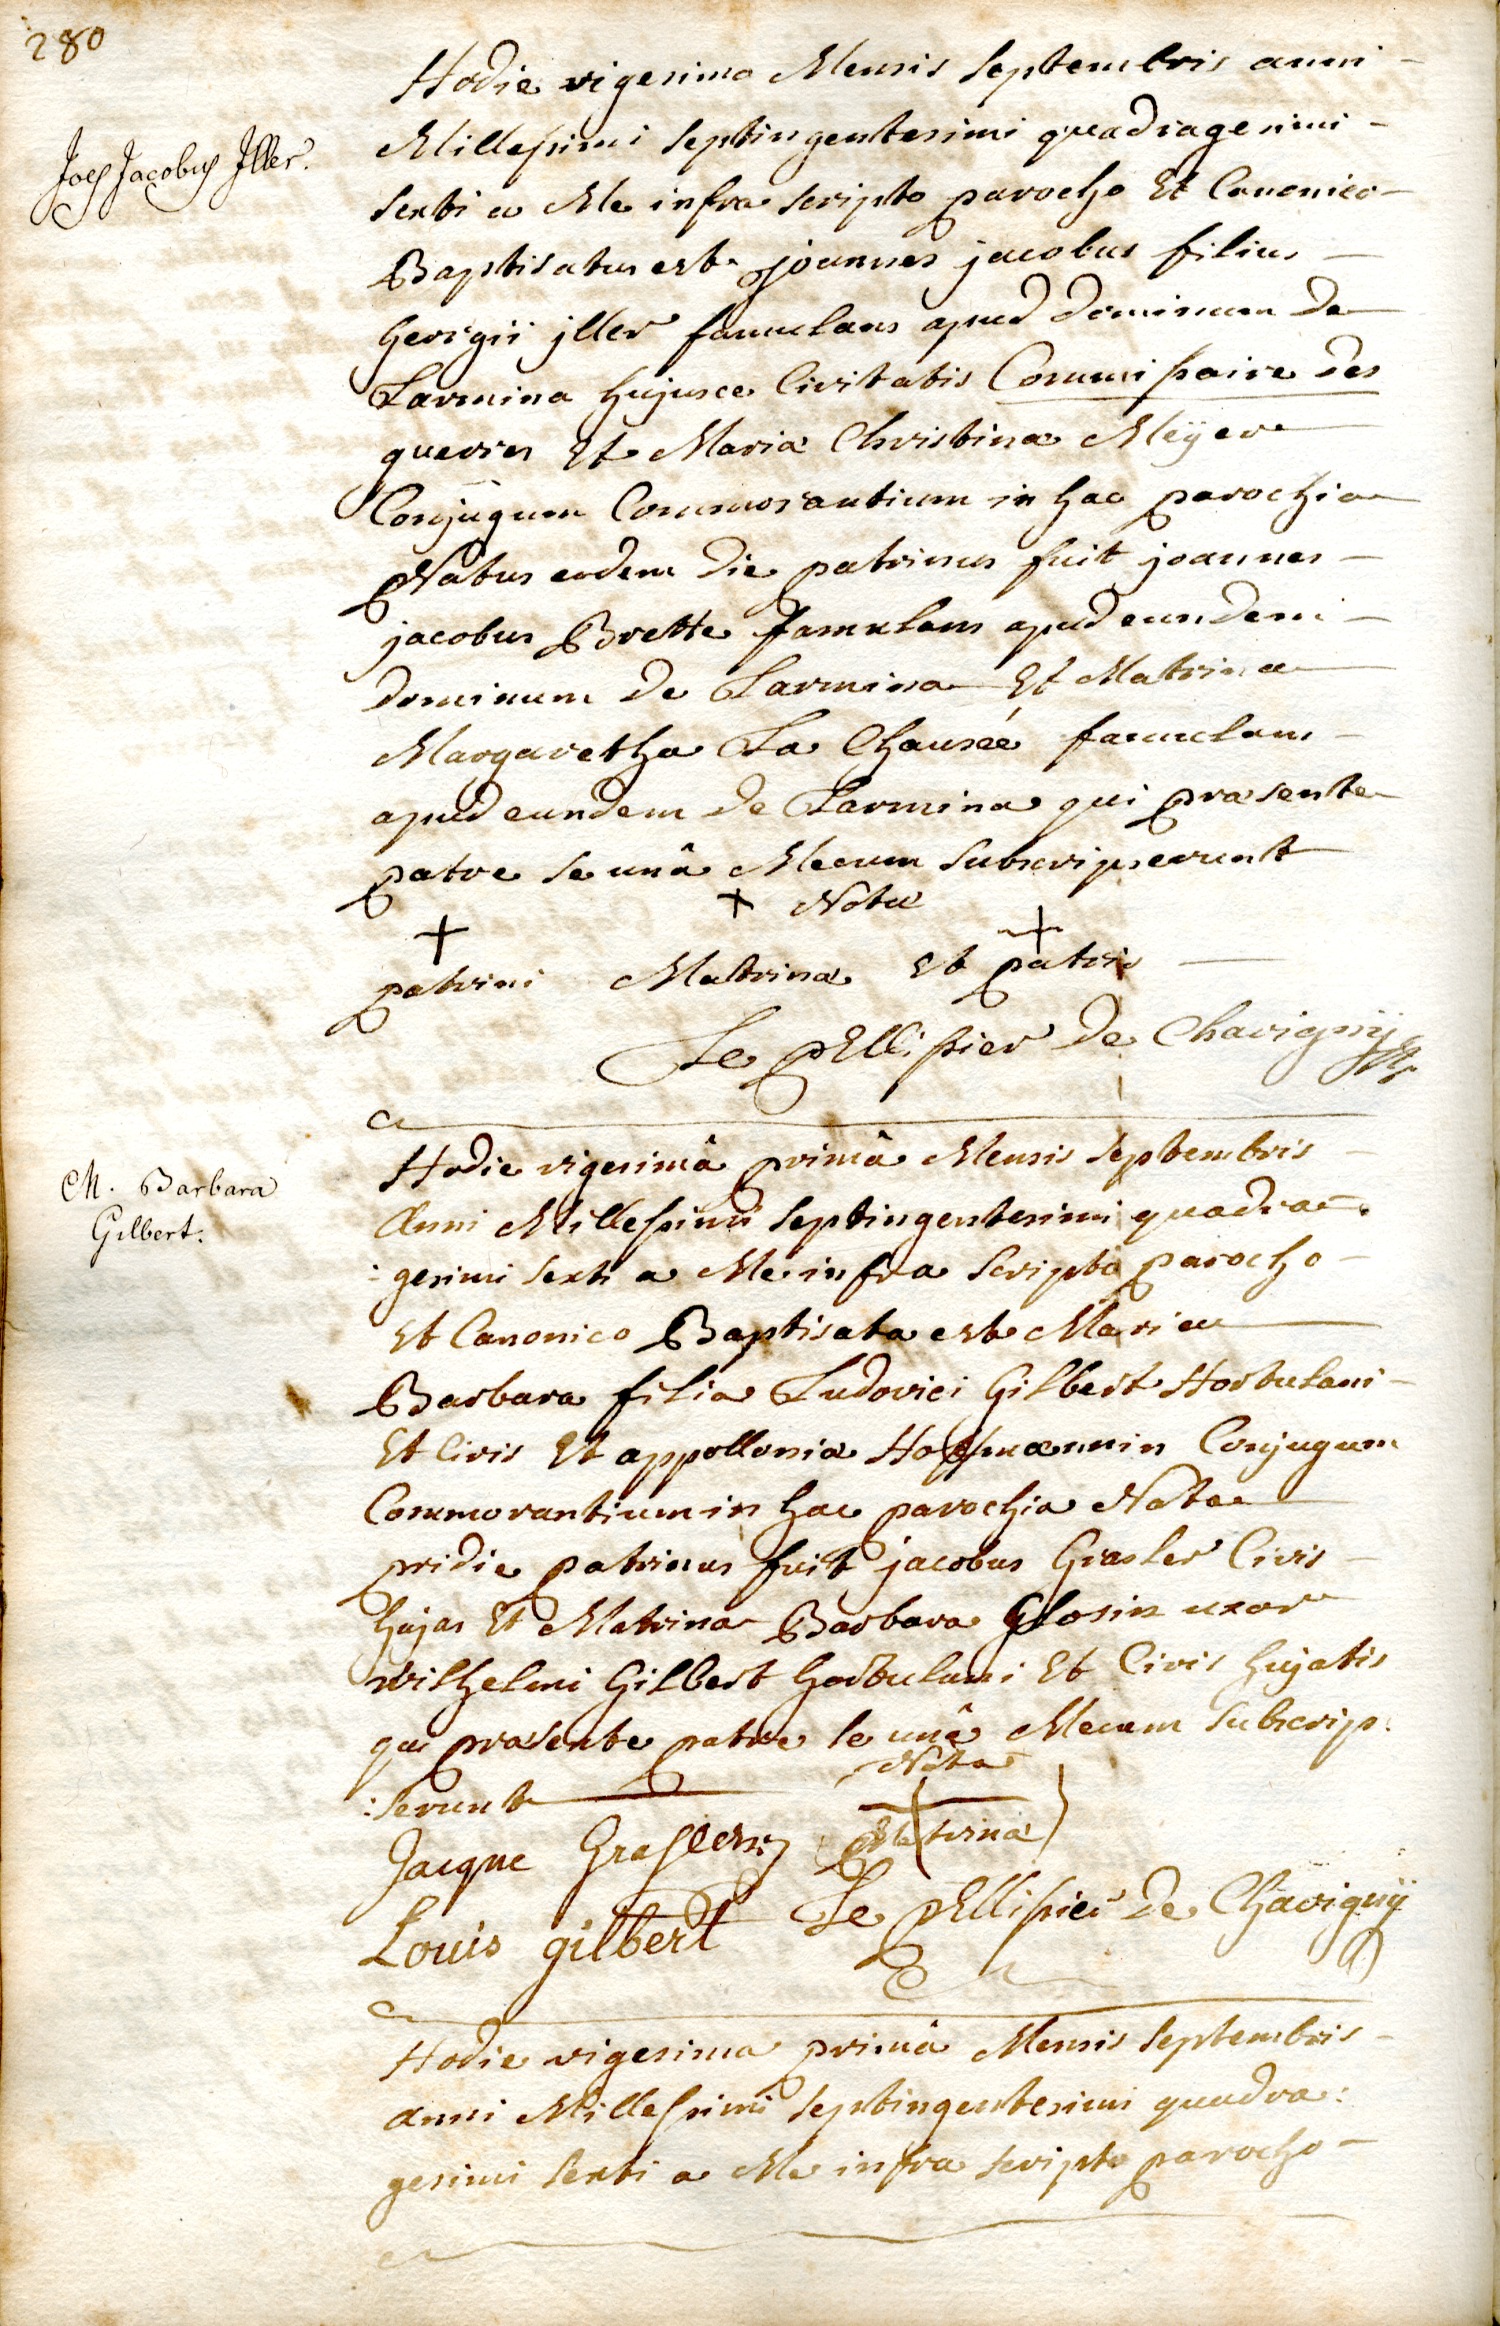 280
Joes Jacobus Iller.
Hodie vigesima Mensis Septembris anni -
Millesimi septingentesimi quadragesimi -
sexti a Me infra scripto parocho Et Canonico -
Baptisatus est joannes jacobus filius -
Georgii jller famulans apud dominum de
Larmina hujusce Civitatis Commissaire des
guerres Et Maria Christina Meÿer
Conjugum Commorantium in hac parochia
Natus eodem die patrinus fuit joannes -
jacobus Brette famulans apud eundem -
dominum de Larmina Et Matrina
Margaretha La Chausée famulans -
apud eundem de Larmina qui præsente
patre se unâ Mecum subscripserunt
+ Notæ
+ +
patrini Matrinæ Et patris
Le pEllissier de Chavignÿ
M. Barbara
Gilbert.
Hodie vigesimâ primâ Mensis Septembris -
Anni Millesimi septingentesimi quadra -
: gesimi sexti a Me infra scripto parocho -
Et Canonico Baptisata est Maria
Barbara filia Ludovici Gilbert Hortulani -
Et Civis Et appolloniæ Hoffmænnin Conjugum
Commorantium in hac parochia Nata
pridie patrinus fuit jacobus Grasler Civis
hujas Et Matrina Barbara Glosin uxor
Wilhelmi Gilbert hortulani Et Civis hujatis
qui præsente patre se unâ Mecum subscrip:
: serunt
Nota
Matrinæ
Jacque Grasler
Louis gilbert Le pEllissier de Chavignÿ
Hodie vigesima primâ Mensis Septembris -
anni Millesimi septingentesimi quadra:
gesimi sexti a Me infra scripto parocho -